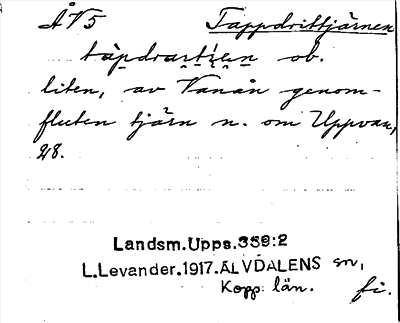 ÅV5 Tappdrittjärnen
ob.
liten, av Vanån genom-
fluten tjärn n. om Uppvan,
28.
Landsm.Upps.359:2
L.Levander.1917.ÄLVDALENS sn,
Kopp. län. fi.